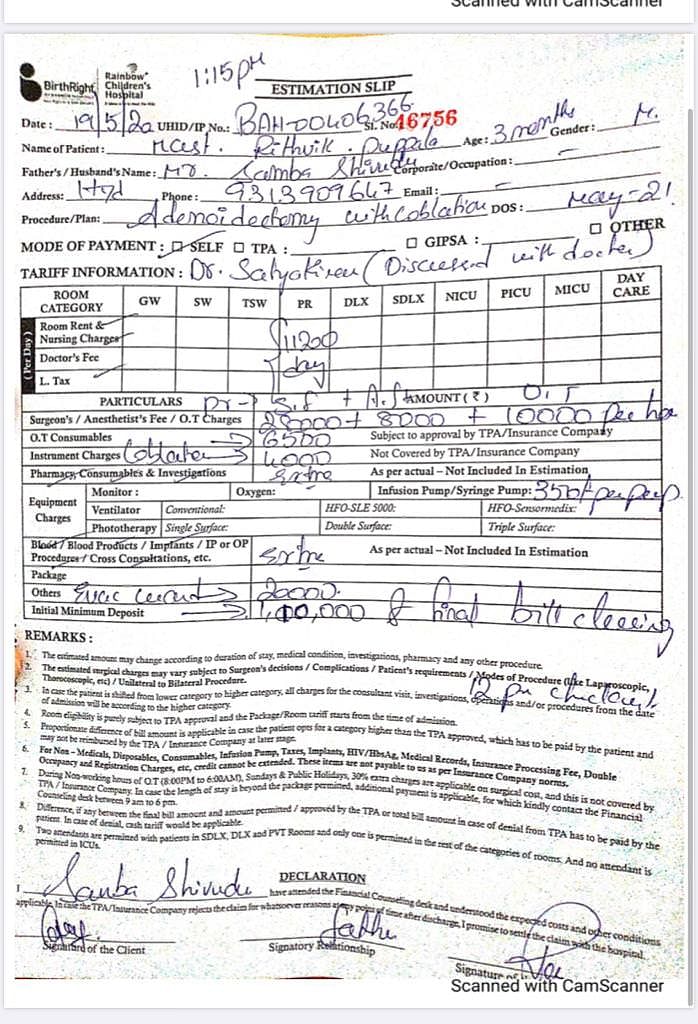 Scanned with CamScanner
BirthRight
Rainbow
Children's
Hospital
1:15pm
ESTIMATION SLIP
Date : 19/5/20 UHID/IP No.: BAH-00406366 Sl. No. 46756
Name of Patient : Mast. Rithvik . Puppala Age : 3 months Gender : M.
Father's / Husband's Name : Mr. Samba Shivudu Corporate/Occupation : –
Address: Hyd Phone : 9313909647 Email : –
Procedure/Plan: Adenoidectomy with Coblation DOS : May-21
MODE OF PAYMENT : □ SELF □ TPA : □ GIPSA : □ OTHER
TARIFF INFORMATION : Dr. Satyakiran (Discussed with doctor)
ROOM CATEGORY GW SW TSW PR DLX SDLX NICU PICU MICU DAY CARE
(Per Day)
Room Rent & Nursing Charges 11200
Doctor's Fee day
L. Tax
PARTICULARS PR- S.f + A.f AMOUNT ( ₹ ) O.T
Surgeon's / Anesthetist's Fee / O.T Charges 28000 + 8000 + 10000 per
O.T Consumables 6500 Subject to approval by TPA/Insurance Company
Instrument Charges Coblation 4000 Not Covered by TPA/Insurance Company
Pharmacy, Consumables & Investigations Extra As per actual – Not Included In Estimation
Equipment Charges
Monitor : Oxygen: Infusion Pump/Syringe Pump: 350/- per pump
Ventilator Conventional: HFO-SLE 5000: HFO-Sensormedix:
Phototherapy Single Surface: Double Surface: Triple Surface:
Blood / Blood Products / Implants / IP or OP
Procedures / Cross Consultations, etc. Extra As per actual – Not Included In Estimation
Package
Others 20000.
Initial Minimum Deposit 1,00,000 & final bill clearing
REMARKS :
1. The estimated amount may change according to duration of stay, medical condition, investigations, pharmacy and any other procedure.
2. The estimated surgical charges may vary subject to Surgeon's decisions / Complications / Patient's requirements / Modes of Procedure (like Laparoscopic,
Thorocoscopic, etc) / Unilateral to Bilateral Procedure.
12 pm checkout
3. In case the patient is shifted from lower category to higher category, all charges for the consultant visit, investigations, operations and/or procedures from the date
of admission will be according to the higher category.
4. Room eligibility is purely subject to TPA approval and the Package/Room tariff starts from the time of admission.
5. Proportionate difference of bill amount is applicable in case the patient opts for a category higher than the TPA approved, which has to be paid by the patient and
may not be reimbursed by the TPA / Insurance Company at later stage.
6. For Non – Medicals, Disposables, Consumables, Infusion Pump, Taxes, Implants, HIV/HBsAg, Medical Records, Insurance Processing Fee, Double
Occupancy and Registration Charges, etc, credit cannot be extended. These items are not payable to us as per Insurance Company norms.
7. During Non-working hours of O.T (8:00PM to 6:00AM), Sundays & Public Holidays, 30% extra charges are applicable on surgical cost, and this is not covered by
TPA / Insurance Company. In case the length of stay is beyond the package permitted, additional payment is applicable, for which kindly contact the Financial
Counseling desk between 9 am to 6 pm.
8. Difference, if any between the final bill amount and amount permitted / approved by the TPA or total bill amount in case of denial from TPA has to be paid by the
patient. In case of denial, cash tariff would be applicable.
9. Two attendants are permitted with patients in SDLX, DLX and PVT Rooms and only one is permitted in the rest of the categories of rooms. And no attendant is
permitted in ICUs.
DECLARATION
I Samba Shivudu have attended the Financial Counseling desk and understood the expected costs and other conditions
applicable. In case the TPA/Insurance Company rejects the claim for whatsoever reasons at any point of time after discharge, I promise to settle the claim with the hospital.
Signature of the Client
Father
Signatory Relationship
Signature of
Scanned with CamScanner